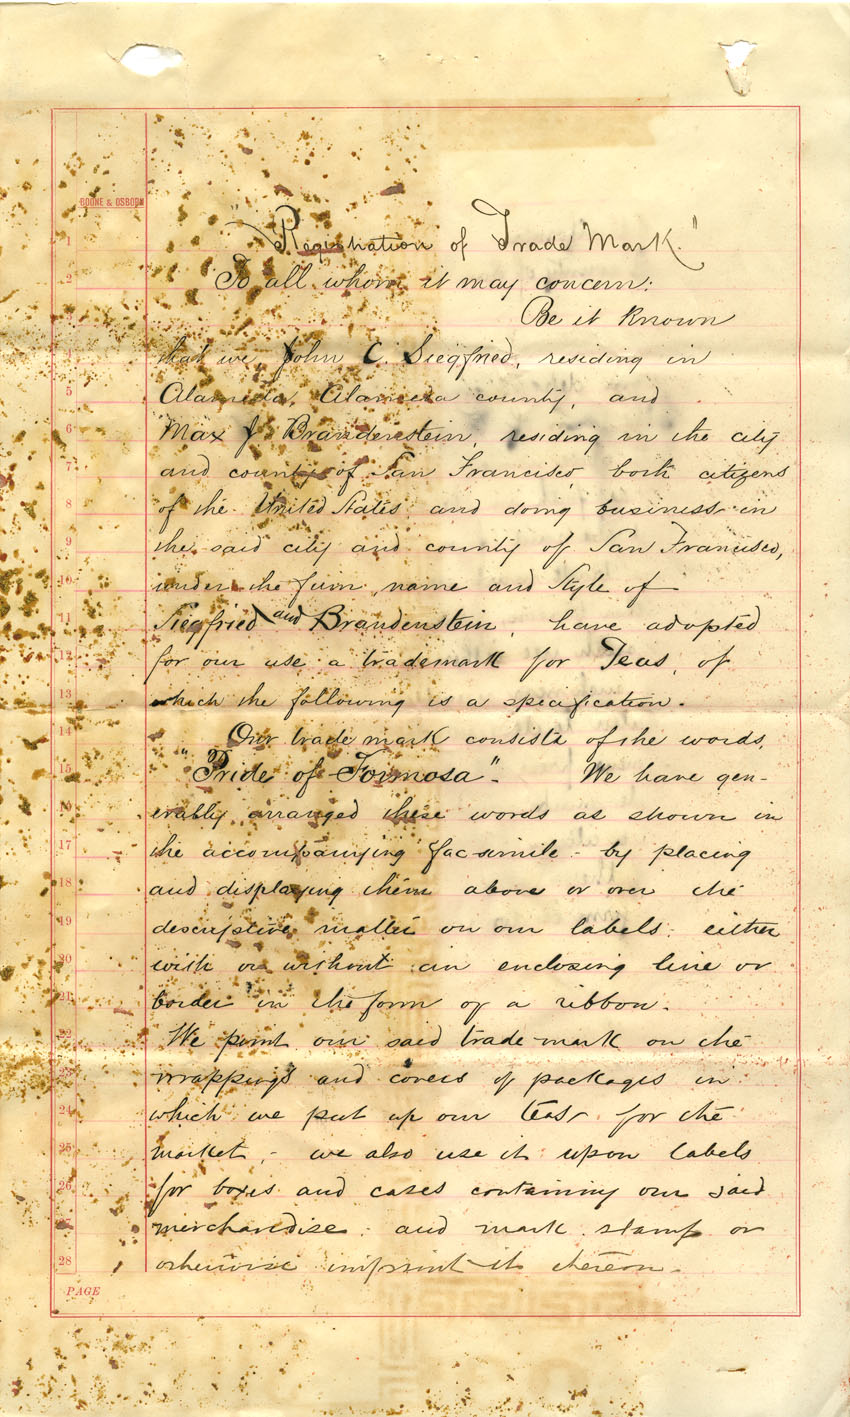 BOONE & OSBORN
"Registration of Trade Mark."
To all whom it may concern:
Be it Known
that we, John C. Siegfried, residing in
Alameda, Alameda county, and
Max J. Brandenstein, residing in the city
and county of San Francisco, both citizens
of the United States, and doing business in
the said city and county of San Francisco,
under the firm, name and Style of
Siegfried and Brandenstein, have adopted
for our use a trademark for Teas, of
which the following is a specification.
Our trade mark consists of the words,
"Pride of Formosa". We have gen-
erably arranged these words as shown in
the accompanying fac-simile - by placing
and displaying them above or over the
descriptive matter on our labels, either
with or without an enclosing line or
border in the form of a ribbon.
We print our said trade-mark on the
wrappings and covers of packages in
which we put up our teas for the
market, - we also use it upon labels
for boxes and cases containing our said
merchandise, and mark, stamp or
otherwise imprint it thereon.
1
2
3
4
5
6
7
8
9
10
11
12
13
14
15
16
17
18
19
20
21
22
23
24
25
26
27
28
PAGE